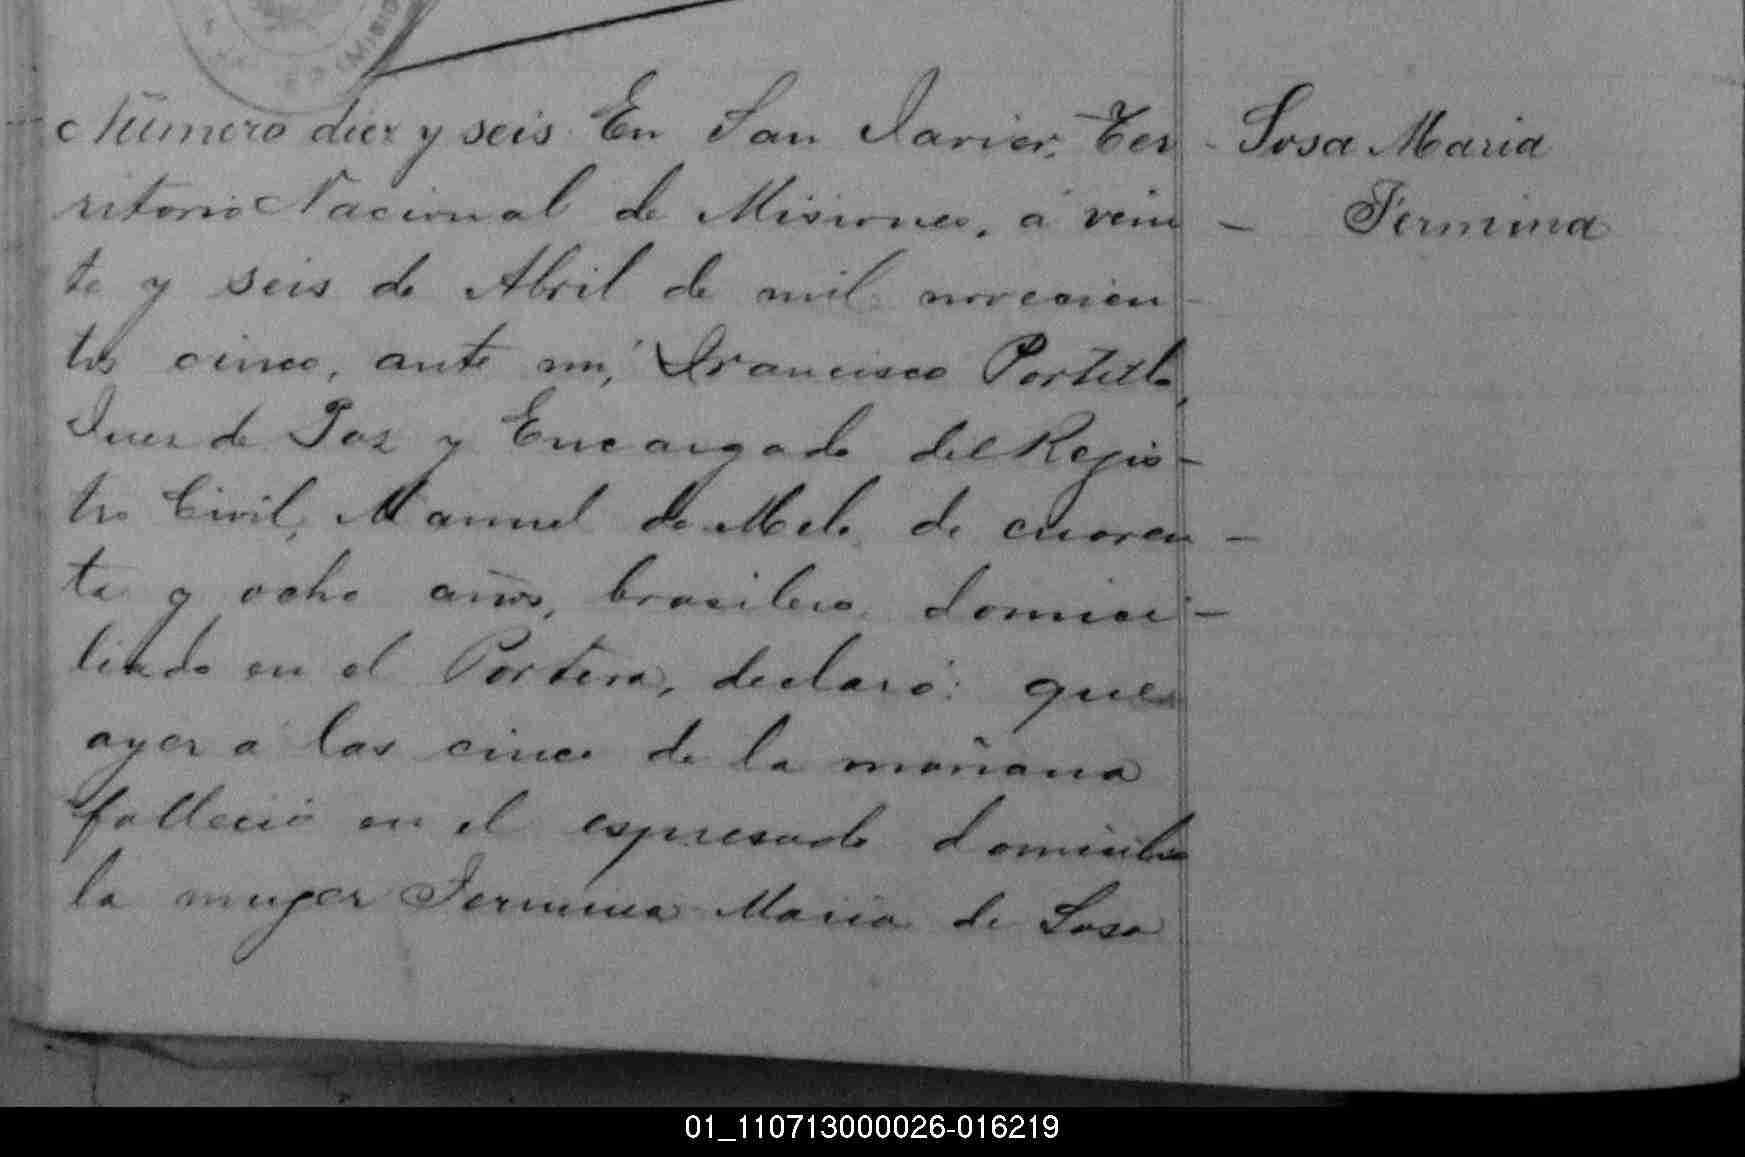 Número diez y seis En San Javier, Ter -
ritorio Nacional de Misiones, á vein -
te y seis de Abril de mil novecien -
tos cinco, ante mi, Francisco Portillo,
Juez de Paz y Encargado del Regis -
tro Civil, Manuel de Melo de cuaren -
ta y ocho años, brasilero, domici -
liado en el Portera, declaró: que
ayer a las cinco de la mañana
falleció en el espresado domicilio
la muger Fermina Maria de Sosa
Sosa Maria
Fermina
01_110713000026-016219